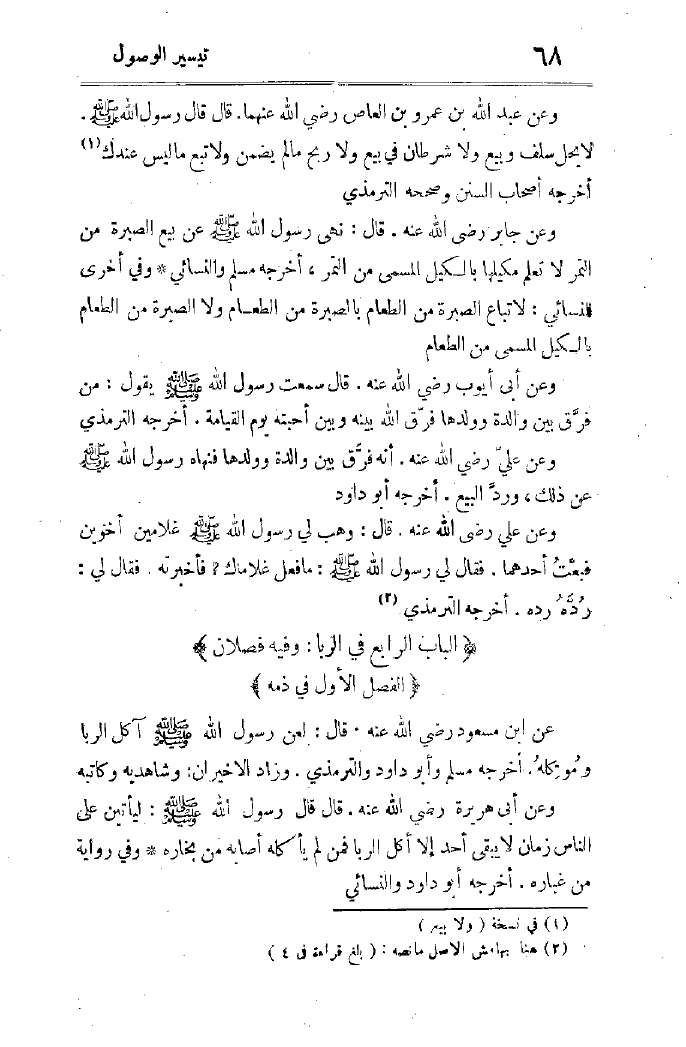 ٦٨
تيسير الوصول
وعن عبد الله بن عمرو بن العاص رضي الله عنهما. قال قال رسول الله ﷺ .
لا يحل سلف وبيع ولا شرطان في بيع ولا ربح مالم يضمن ولا تبع ما ليس عندك (١)
أخرجه أصحاب السنن وصححه الترمذي
وعن جابر رضى الله عنه . قال : نهى رسول الله ﷺ عن بيع الصبرة من
التمر لا تعلم مكيلها بالكيل المسمى من التمر ، أخرجه مسلم والنسائي * وفي أخرى
للنسائي : لا تباع الصبرة من الطعام بالصبرة من الطعام ولا الصبرة من الطعام
بالكيل المسمى من الطعام
وعن أبى أيوب رضي الله عنه . قال سمعت رسول الله ﷺ يقول : من
فرَّق بين والدة وولدها فرّق الله بينه وبين أحبته يوم القيامة . أخرجه الترمذي
وعن عليّ رضي الله عنه . أنه فرَّق بين والدة وولدها فنهاه رسول الله ﷺ
عن ذلك ، وردَّ البيع . أخرجه أبو داود
وعن علي رضى الله عنه . قال : وهب لي رسول الله ﷺ غلامين أخوين
فبعْتُ أحدهما . فقال لي رسول الله ﷺ : مافعل غلاماك ؟ فأخبرته . فقال لي :
رُدَّهُ رده . أخرجه الترمذي (٢)
﴿ الباب الرابع في الربا : وفيه فصلان ﴾
﴿ الفصل الأول في ذمه ﴾
عن ابن مسعود رضي الله عنه . قال : لعن رسول الله ﷺ آكل الربا
ومُوكِلهُ. أخرجه مسلم وأبو داود والترمذي . وزاد الاخيران: وشاهديه وكاتبه
وعن أبى هريرة رضي الله عنه . قال قال رسول الله ﷺ : ليأتين على
الناس زمان لا يبقى أحد إلا أكل الربا فمن لم يأكله أصابه من بخاره * وفي رواية
من غباره . أخرجه أبو داود والنسائي
(١) في نسخة ( ولا بيع )
(٢) هنا بهامش الاصل مانصه : ( بلغ قراءة فى ٤ )